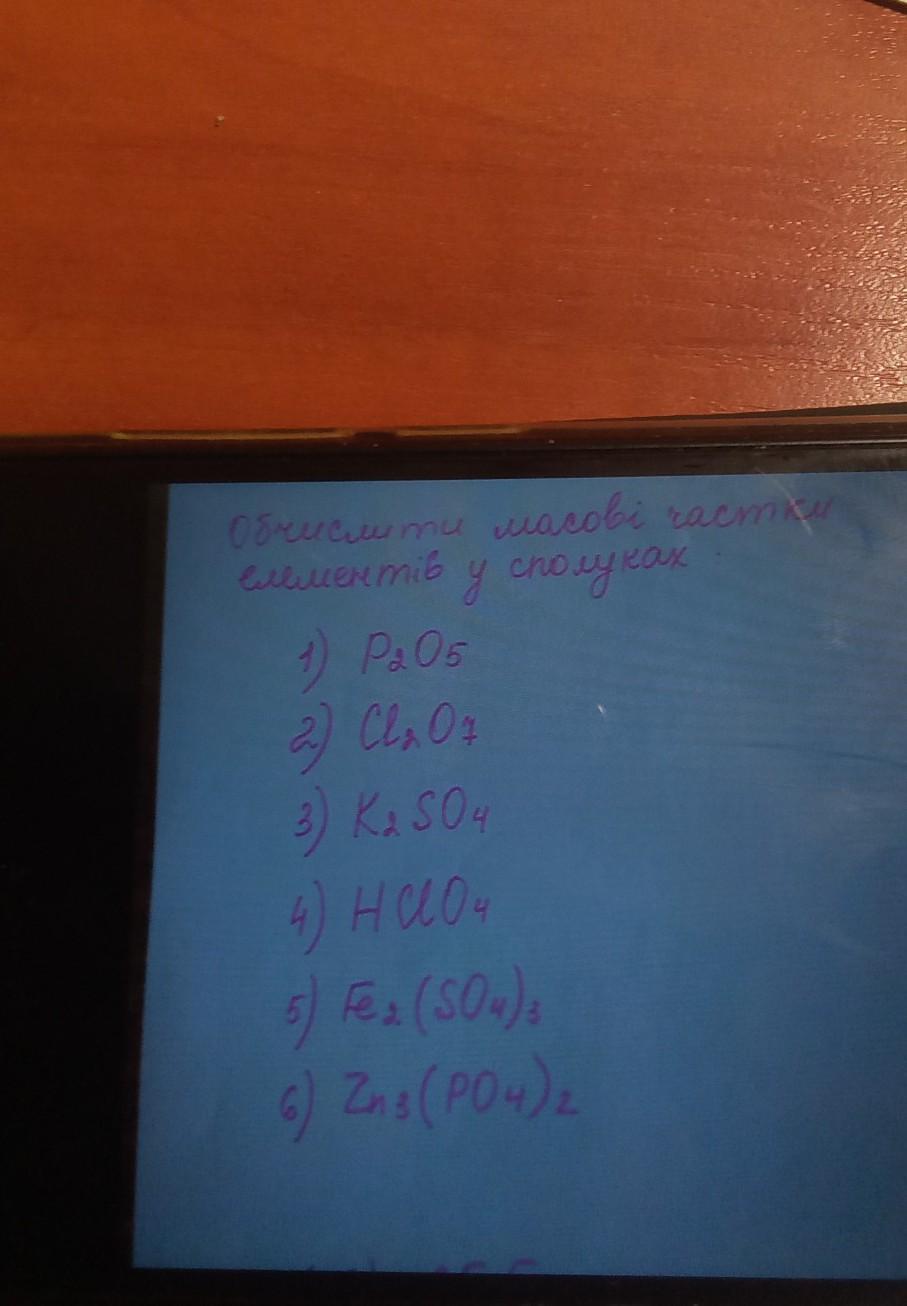 Обчислити масові частки
елементів у сполуках
1) P₂O₅
2) Cl₂O₇
3) K₂SO₄
4) HClO₄
5) Fe₂(SO₄)₃
6) Zn₃(PO₄)₂